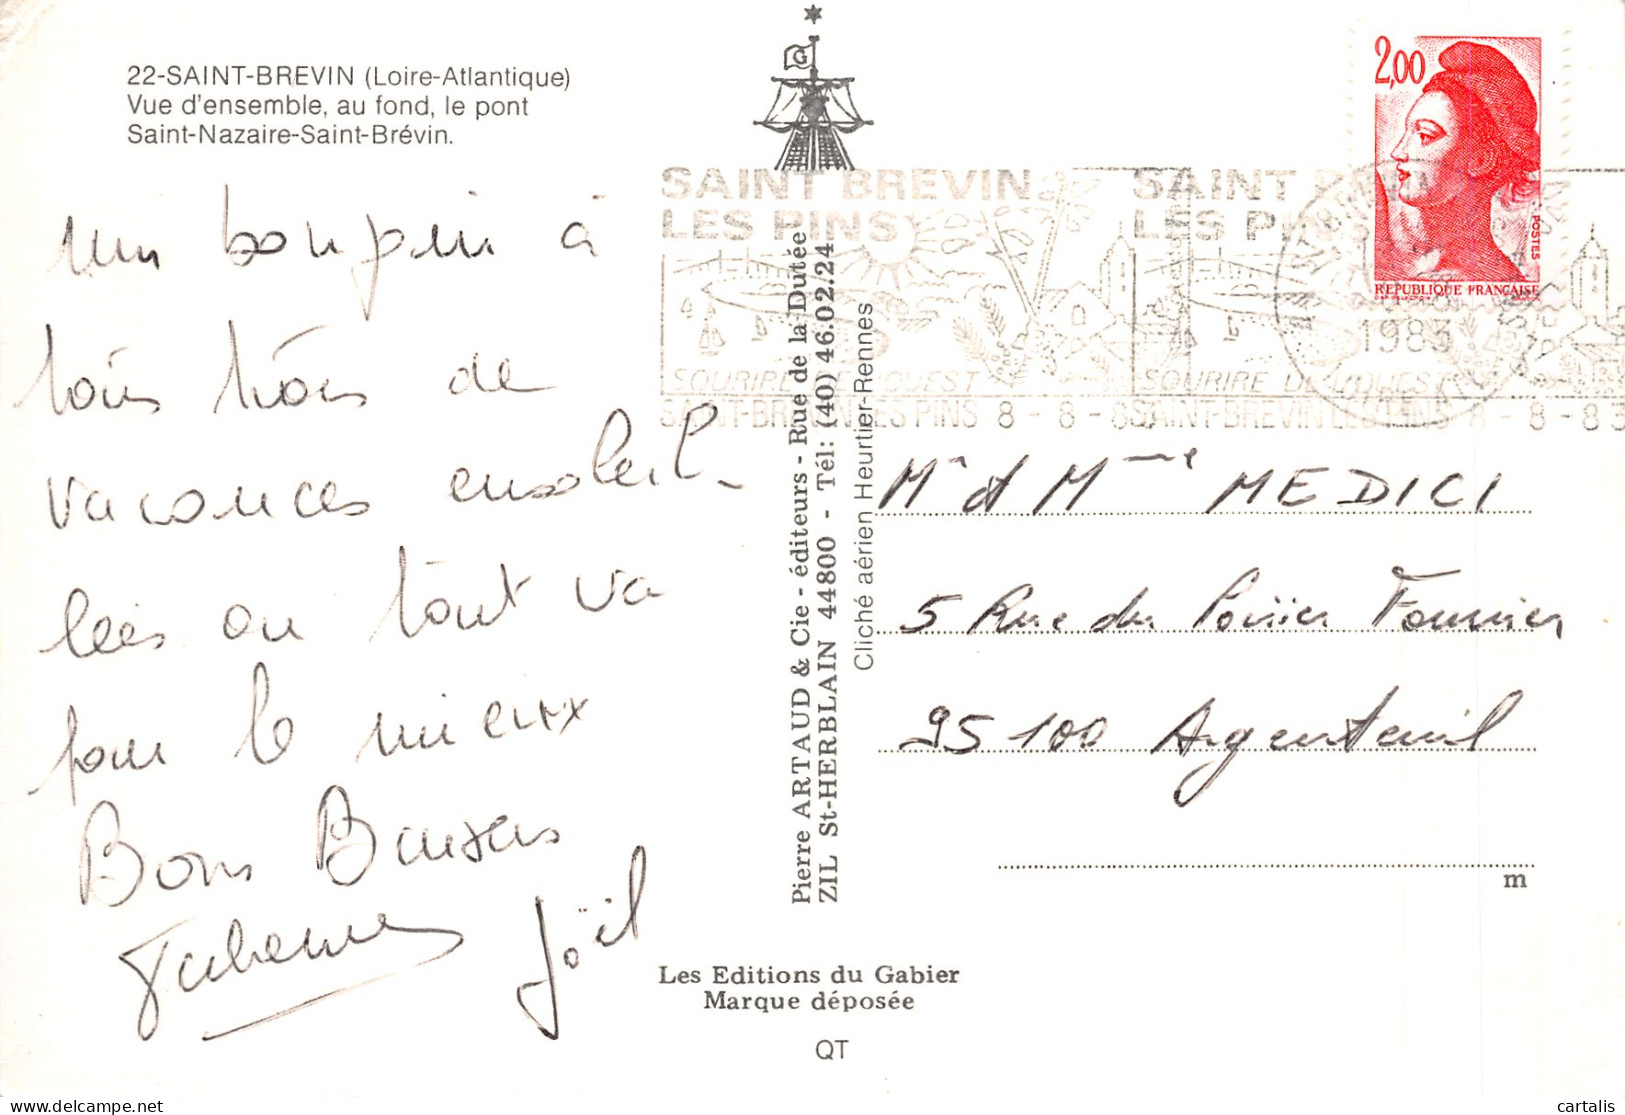 22-SAINT-BREVIN (Loire-Atlantique)
Vue d'ensemble, au fond, le pont
Saint-Nazaire-Saint-Brévin.
un bonjour à
tous trois de
vacances ensoleil-
lées où tout va
pour le mieux
Bons Baisers
Joël
Pierre ARTAUD & Cie - éditeurs - Rue de la Dutée
ZIL St-HERBLAIN 44800 - Tél: (40) 46.02.24
Cliché aérien Heurtier-Rennes
Les Editions du Gabier
Marque déposée
QT
G
2,00
POSTES
REPUBLIQUE FRANÇAISE
SAINT BREVIN
LES PINS
SOURIRE DE L'OUEST
SAINT-BREVIN LES PINS 8 - 8 - 83
SAINT BREVIN
LES PINS
SOURIRE DE L'OUEST
SAINT-BREVIN LES PINS 8 - 8 - 83
1983
Mr et Mme MEDICI
5 Rue du Poirier Fournier
95100 Argenteuil
m
cartalis